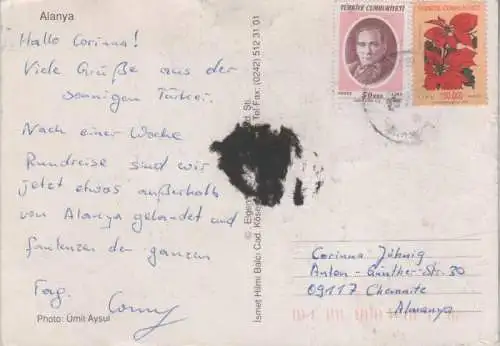 Alanya
Hallo Corinna!
Viele Grüße aus der
sonnigen Türkei.
Nach einer Woche
Rundreise sind wir
jetzt etwas außerhalb
von Alanya gelandet und
faulenzen den ganzen
Tag.
Photo: Ümit Aysul
İsmet Hilmi Balcı Cad. Köse
Tel Fax: (0242) 512 31 01
TÜRKİYE CUMHURİYETİ
50
TÜRKİYE CUMHURİYETİ
Corinna Jähnig
Anton-Günther-Str. 30
09117 Chemnitz
Almanya